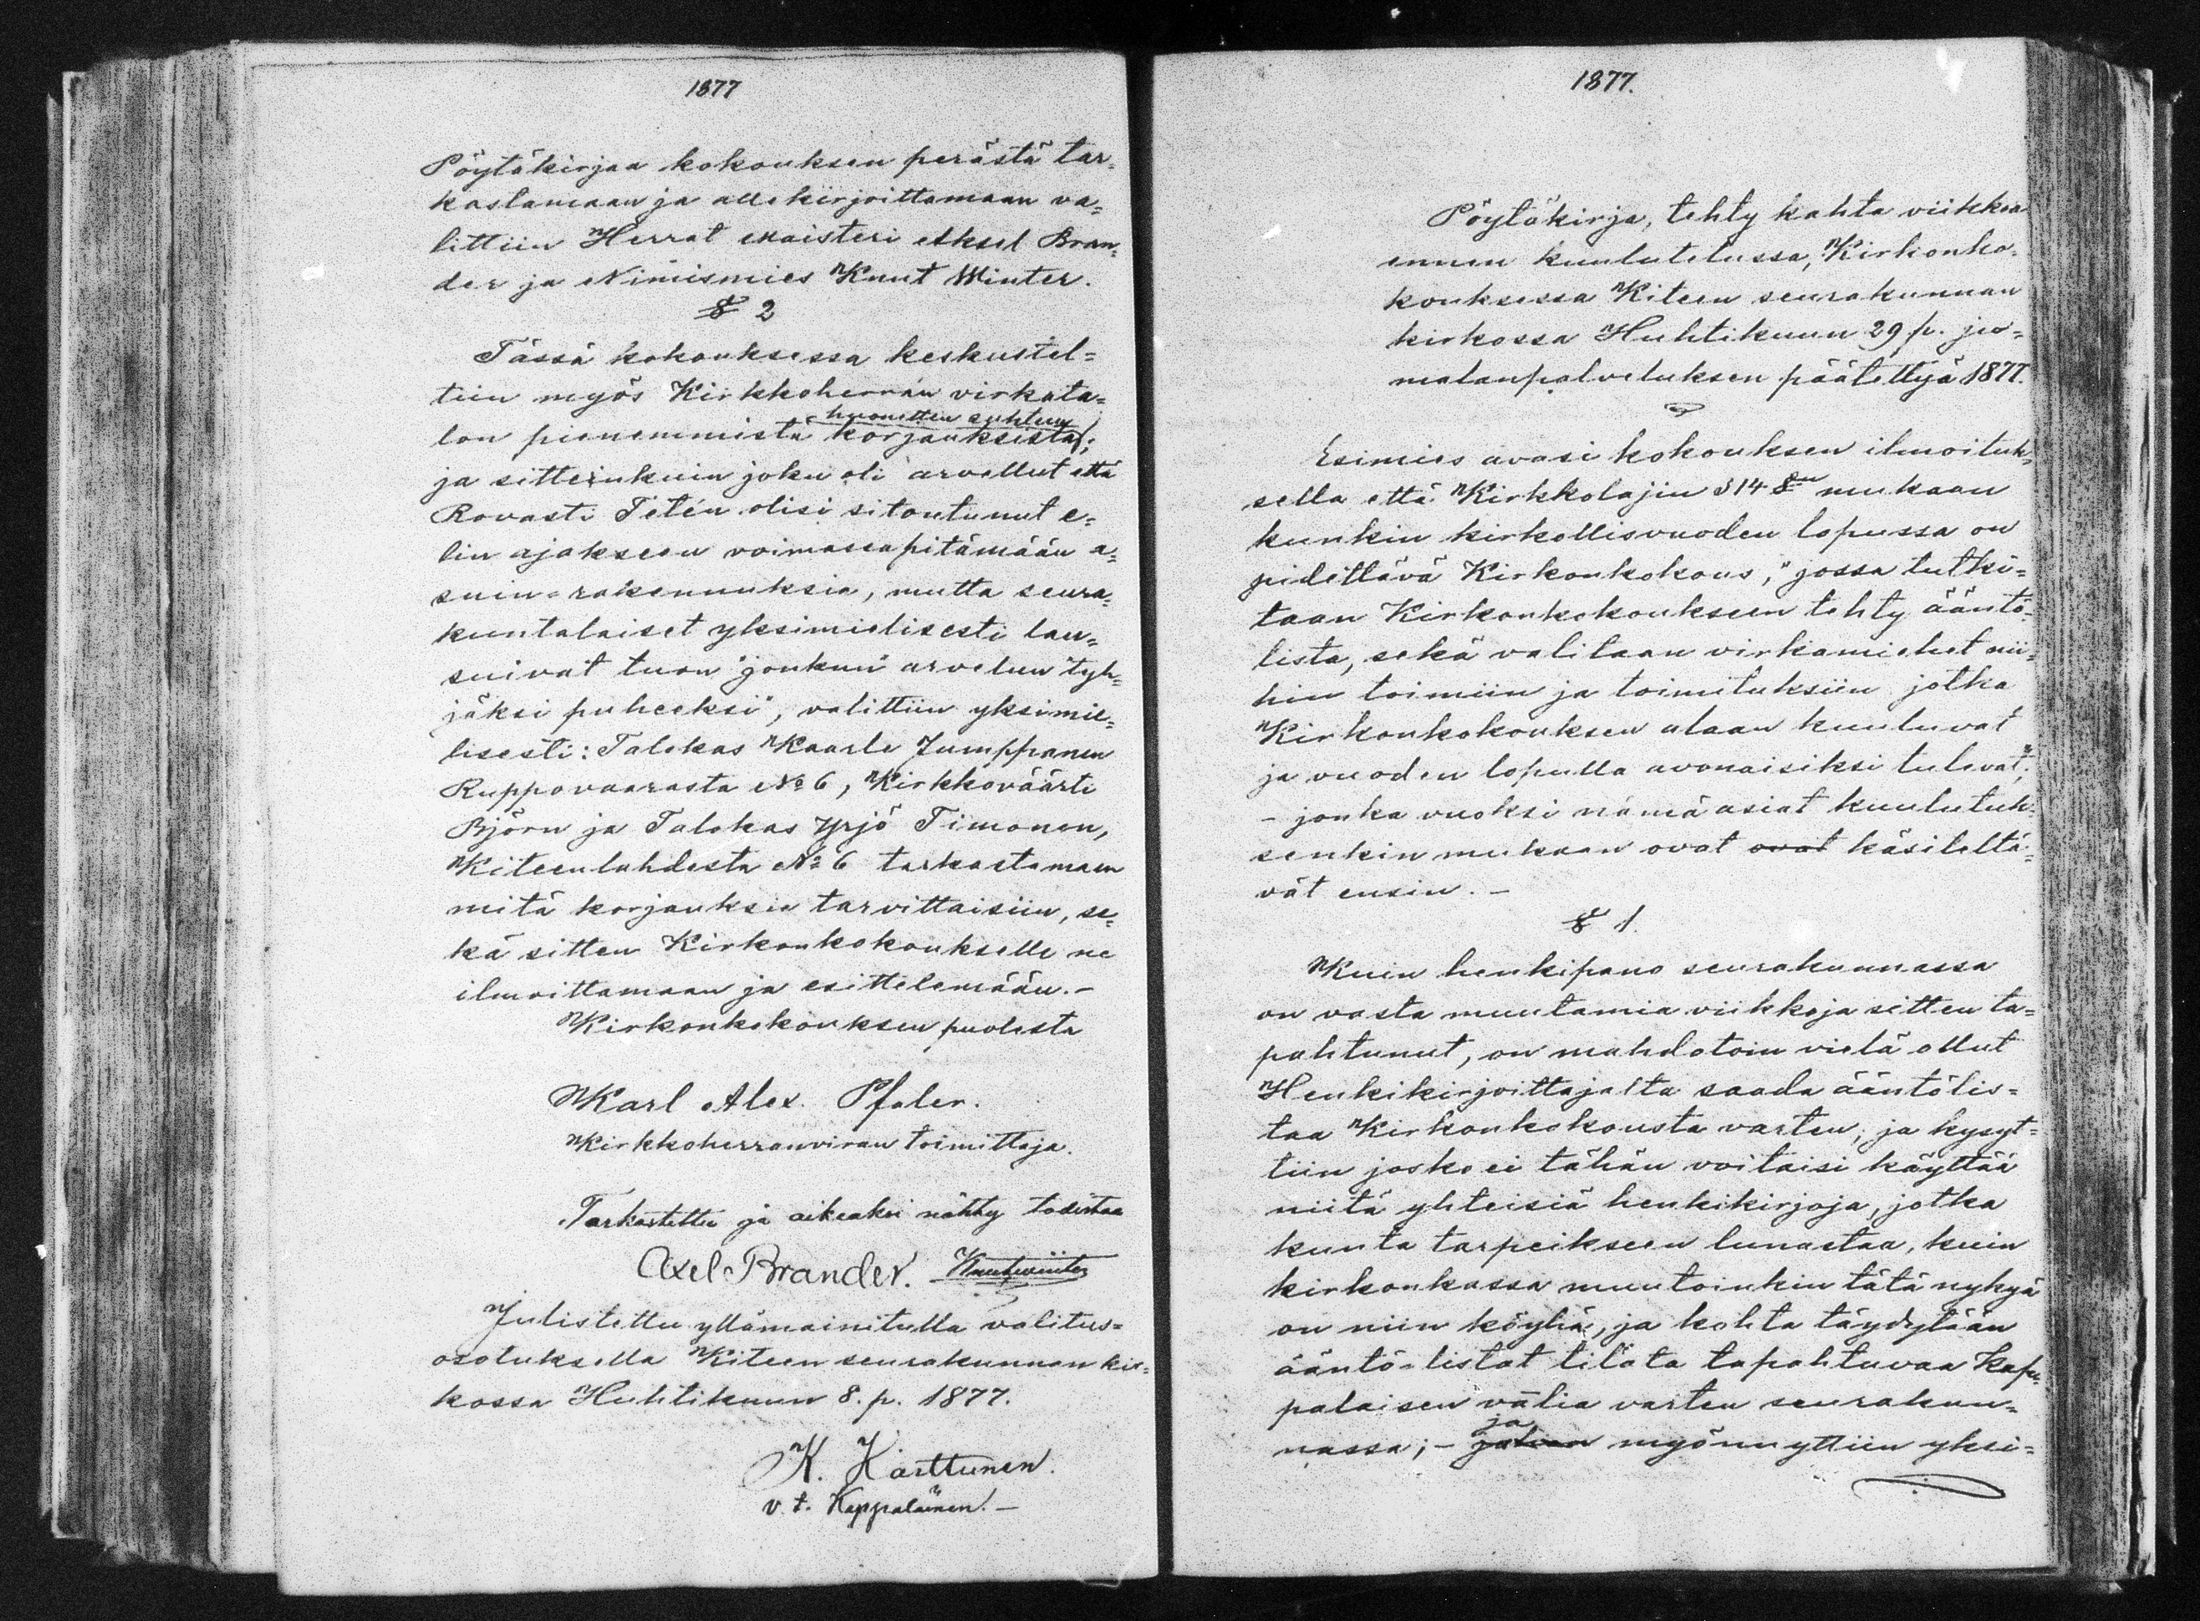 1877
Pöytäkirjaa kokouksen perästä tar=
kastamaan ja allekirjoittamaan va=
littiin Herrat Maisteri Aksel Bran=
der ja Nimismies Knut Winter.
§ 2
Tässä kokouksessa keskustel=
tiin myös Kirkkoherran virkata=
huonetten suhteen
lon pienemmistä korjauksista;
ja sittenkuin joku oli arvellut että
Rovasti Tetén olisi sitoutunut e=
lin ajakseen voimassapitämään a=
suin-rakennuksia, mutta seura=
kuntalaiset yksimielisesti lau=
suivat tuon "jonkun" arvelun "tyh=
jäksi puheeksi", valittiin yksimie=
lisesti: Talokas Kaarle Jumppanen
Ruppovaarasta No 6, Kirkkoväärti
Björn ja Talokas Yrjö Timonen,
Kiteenlahdesta No 6 tarkastamaan
mitä korjauksia tarvittaisiin, se=
kä sitten Kirkonkokoukselle ne
ilmoittamaan ja esittelemään.-
Kirkonkokouksen puolesta
Karl Alex. Pfaler.
Kirkkoherranviran toimittaja.
Tarkastettu ja oikeaksi nähty todistaa
Axel Brander. Knut Winter
Julistettu yllämainitulla valitus=
osotuksella Kiteen seurakunnan kir=
kossa Huhtikuun 8. p. 1877.
K. Karttunen.
v. t. Kappalainen.-
1877.
Pöytäkirja, tehty kahta viikkoa
ennen kuulutetussa, Kirkonko=
kouksessa Kiteen seurakunnan
kirkossa Huhtikuun 29 p. ju=
malanpalveluksen päätettyä 1877.
Esimies avasi kokouksen ilmoituk=
sella että Kirkkolajin 314 §:n mukaan
kunkin kirkollisvuoden lopussa on
pidettävä Kirkonkokous, "jossa tutki=
taan Kirkonkokoukseen tehty ääntö=
lista, sekä valitaan virkamiehet nii=
hin toimiin ja toimituksiin jotka
Kirkonkokouksen alaan kuuluvat
ja vuoden lopulla avonaisiksi tulevat",
- jonka vuoksi nämä asiat kuulutuk=
senkin mukaan ovat ovat käsiteltä=
vät ensin.-
§ 1.
Kuin henkipano seurakunnassa
on vasta muutamia viikkoja sitten ta=
pahtunut, on mahdotoin vielä ollut
Henkikirjoittajalta saada ääntölis=
taa Kirkonkokousta varten, ja kysyt=
tiin josko ei tähän voitaisi käyttää
niitä yhteisiä henkikirjoja, jotka
kunta tarpeikseen lunastaa, kuin
kirkonkassa muutoinkin tätä nykyä
on niin köyhä, ja kohta täydytään
ääntö-listat tilata tapahtuvaa Kap=
palaisen välia varten seurakun=
ja
nassa; - myönnyttiin yksi=